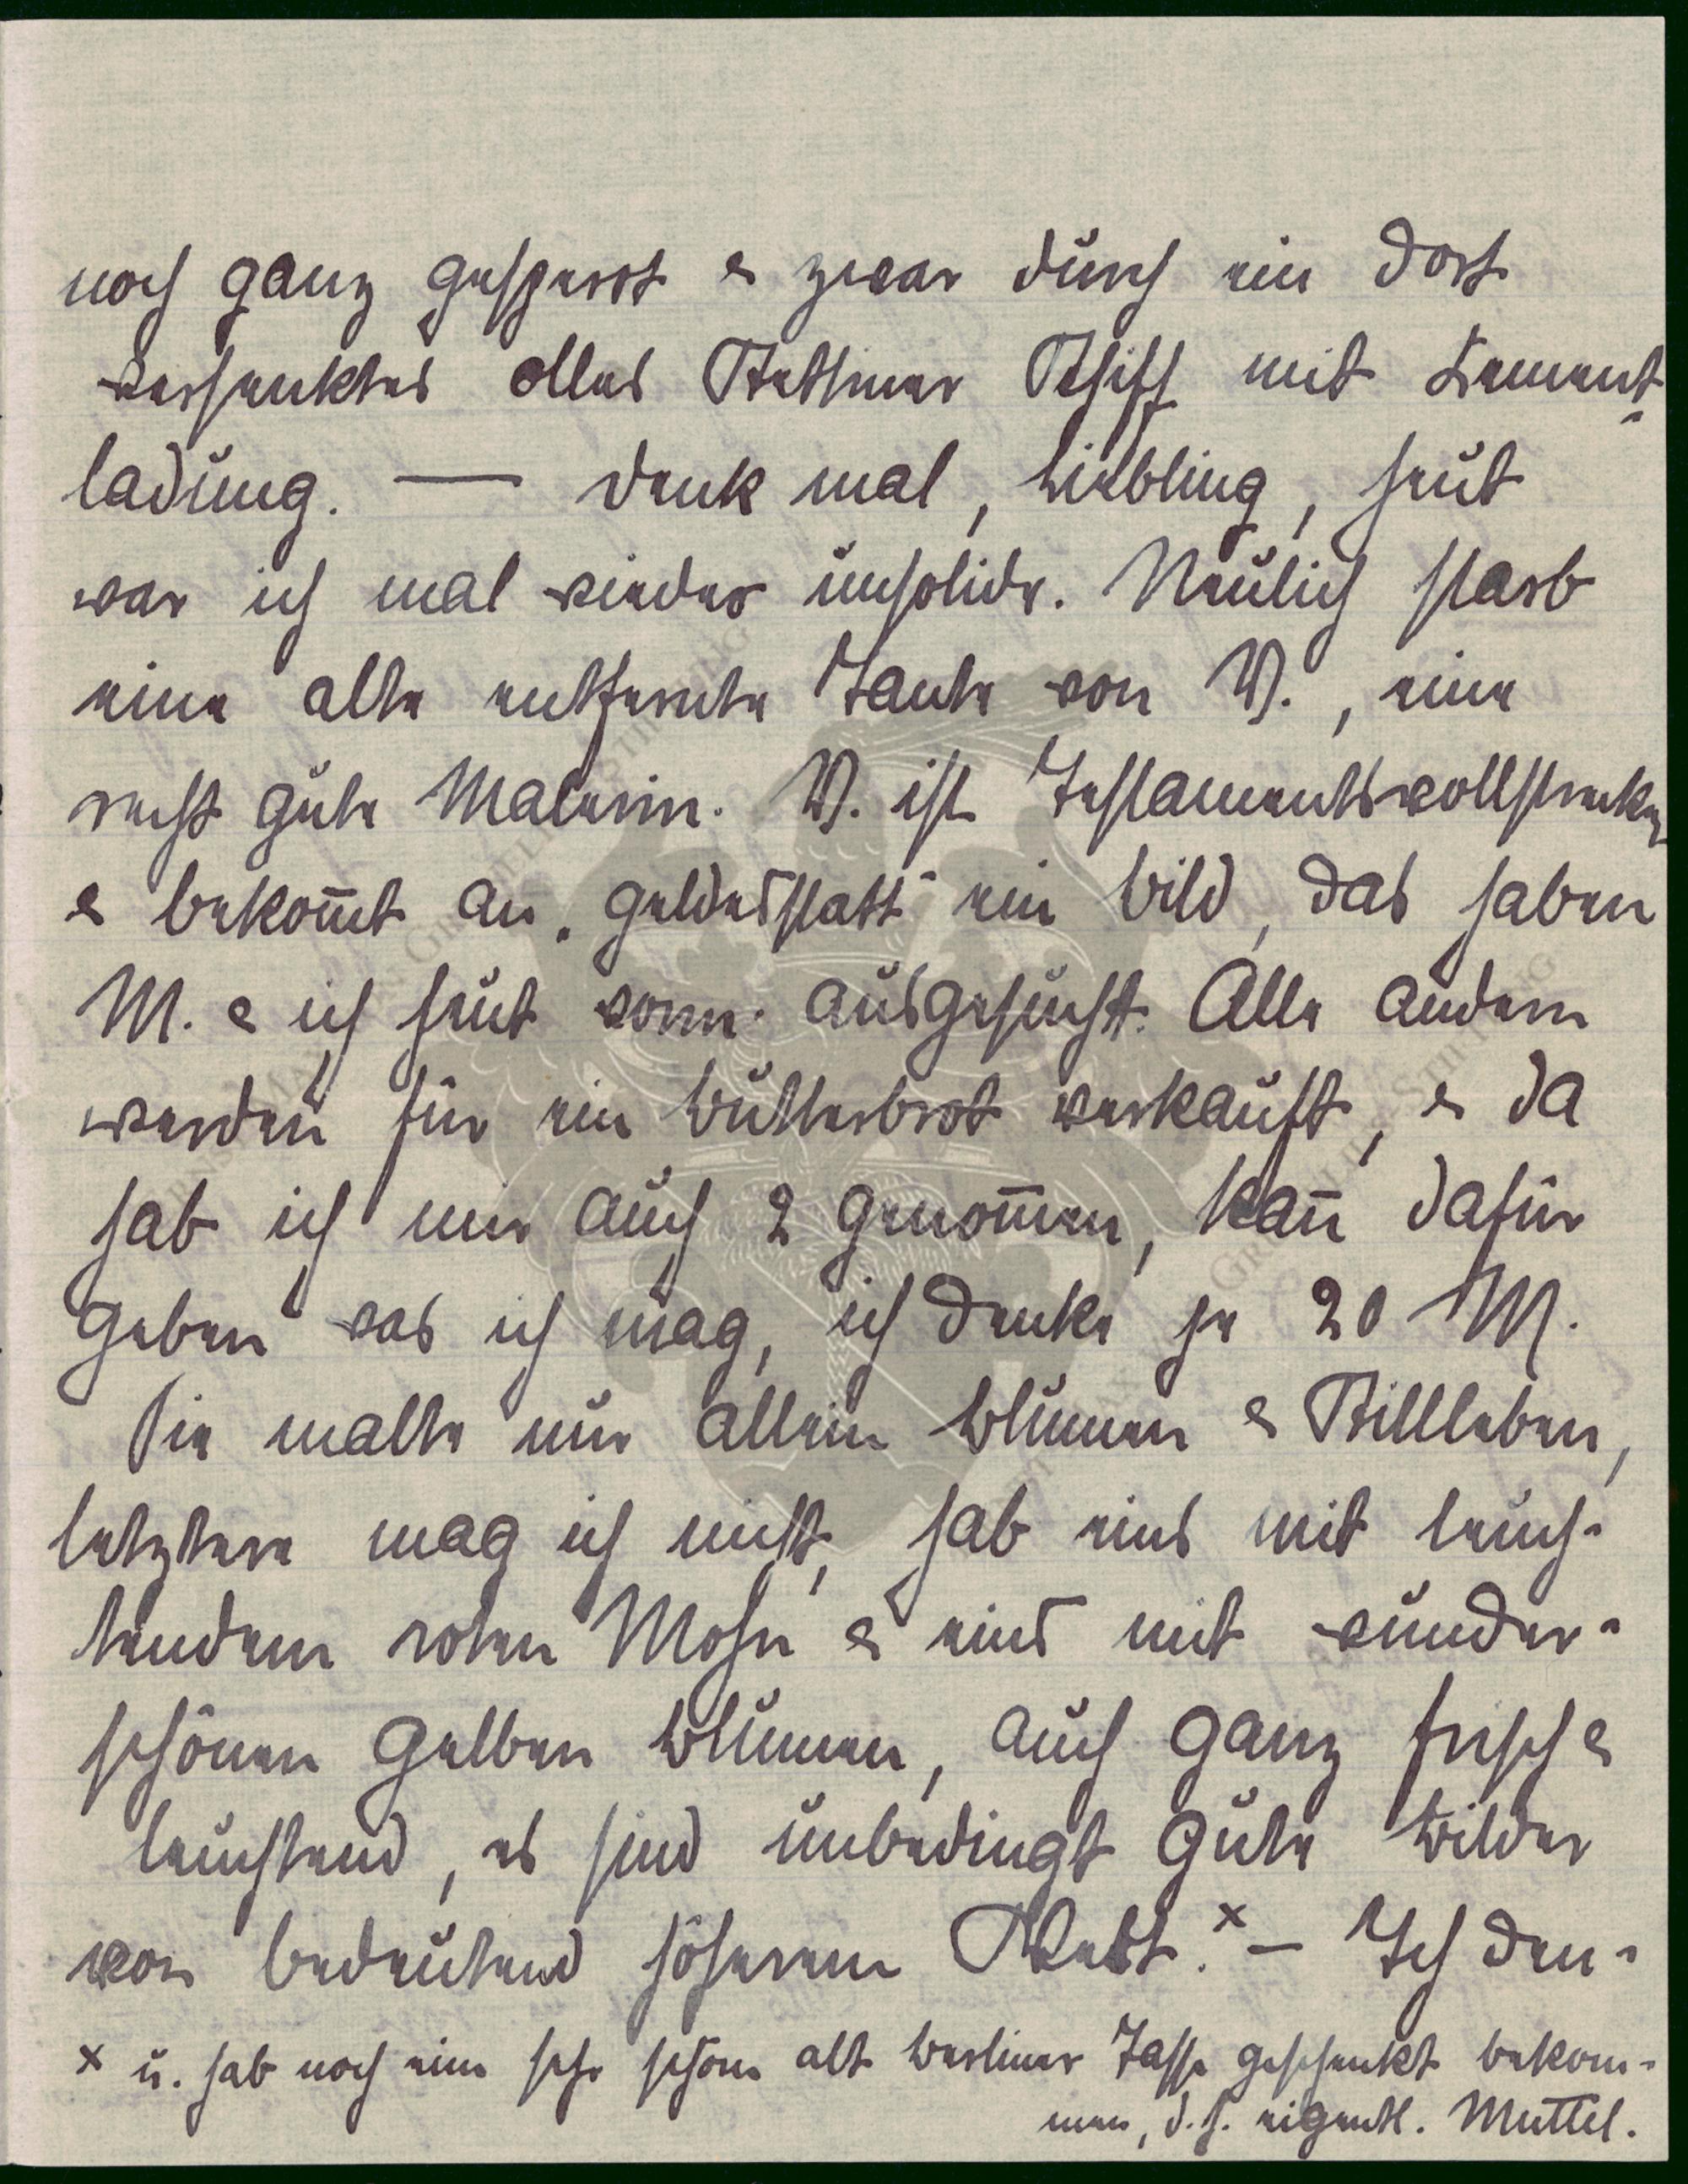 noch ganz gesperrt & zwar durch ein dort
versenktes olles Stettiner Schiff mit Zement-
ladung. — Denk mal, Liebling, heut
war ich mal wieder unsolide. Neulich starb
eine alte entfernte Tante von W., eine
recht gute Malerin. W. ist Testamentsvollstrecker
& bekom̅t an „Geldesstatt" ein Bild, das haben
M. & ich heut vorm. ausgesucht. Alle andern
werden für ein Butterbrot verkauft, & da
hab ich mir auch 2 genom̅en, kan̅ dafür
geben was ich mag, ich denke je 20 M.
Sie malte nur allein Blumen & Stillleben,
letztere mag ich nicht, hab eins mit leuch-
tendem roten Mohn & eins mit wunder-
schönen gelben Blumen, auch ganz frisch &
leuchtend, es sind unbedingt gute Bilder
von bedeutend höherem Wert.ˣ — Ich den-
x u. hab noch eine sehr schöne alt Berliner Tasse geschenkt bekom-
men, d.h. eigentl. Muttel.